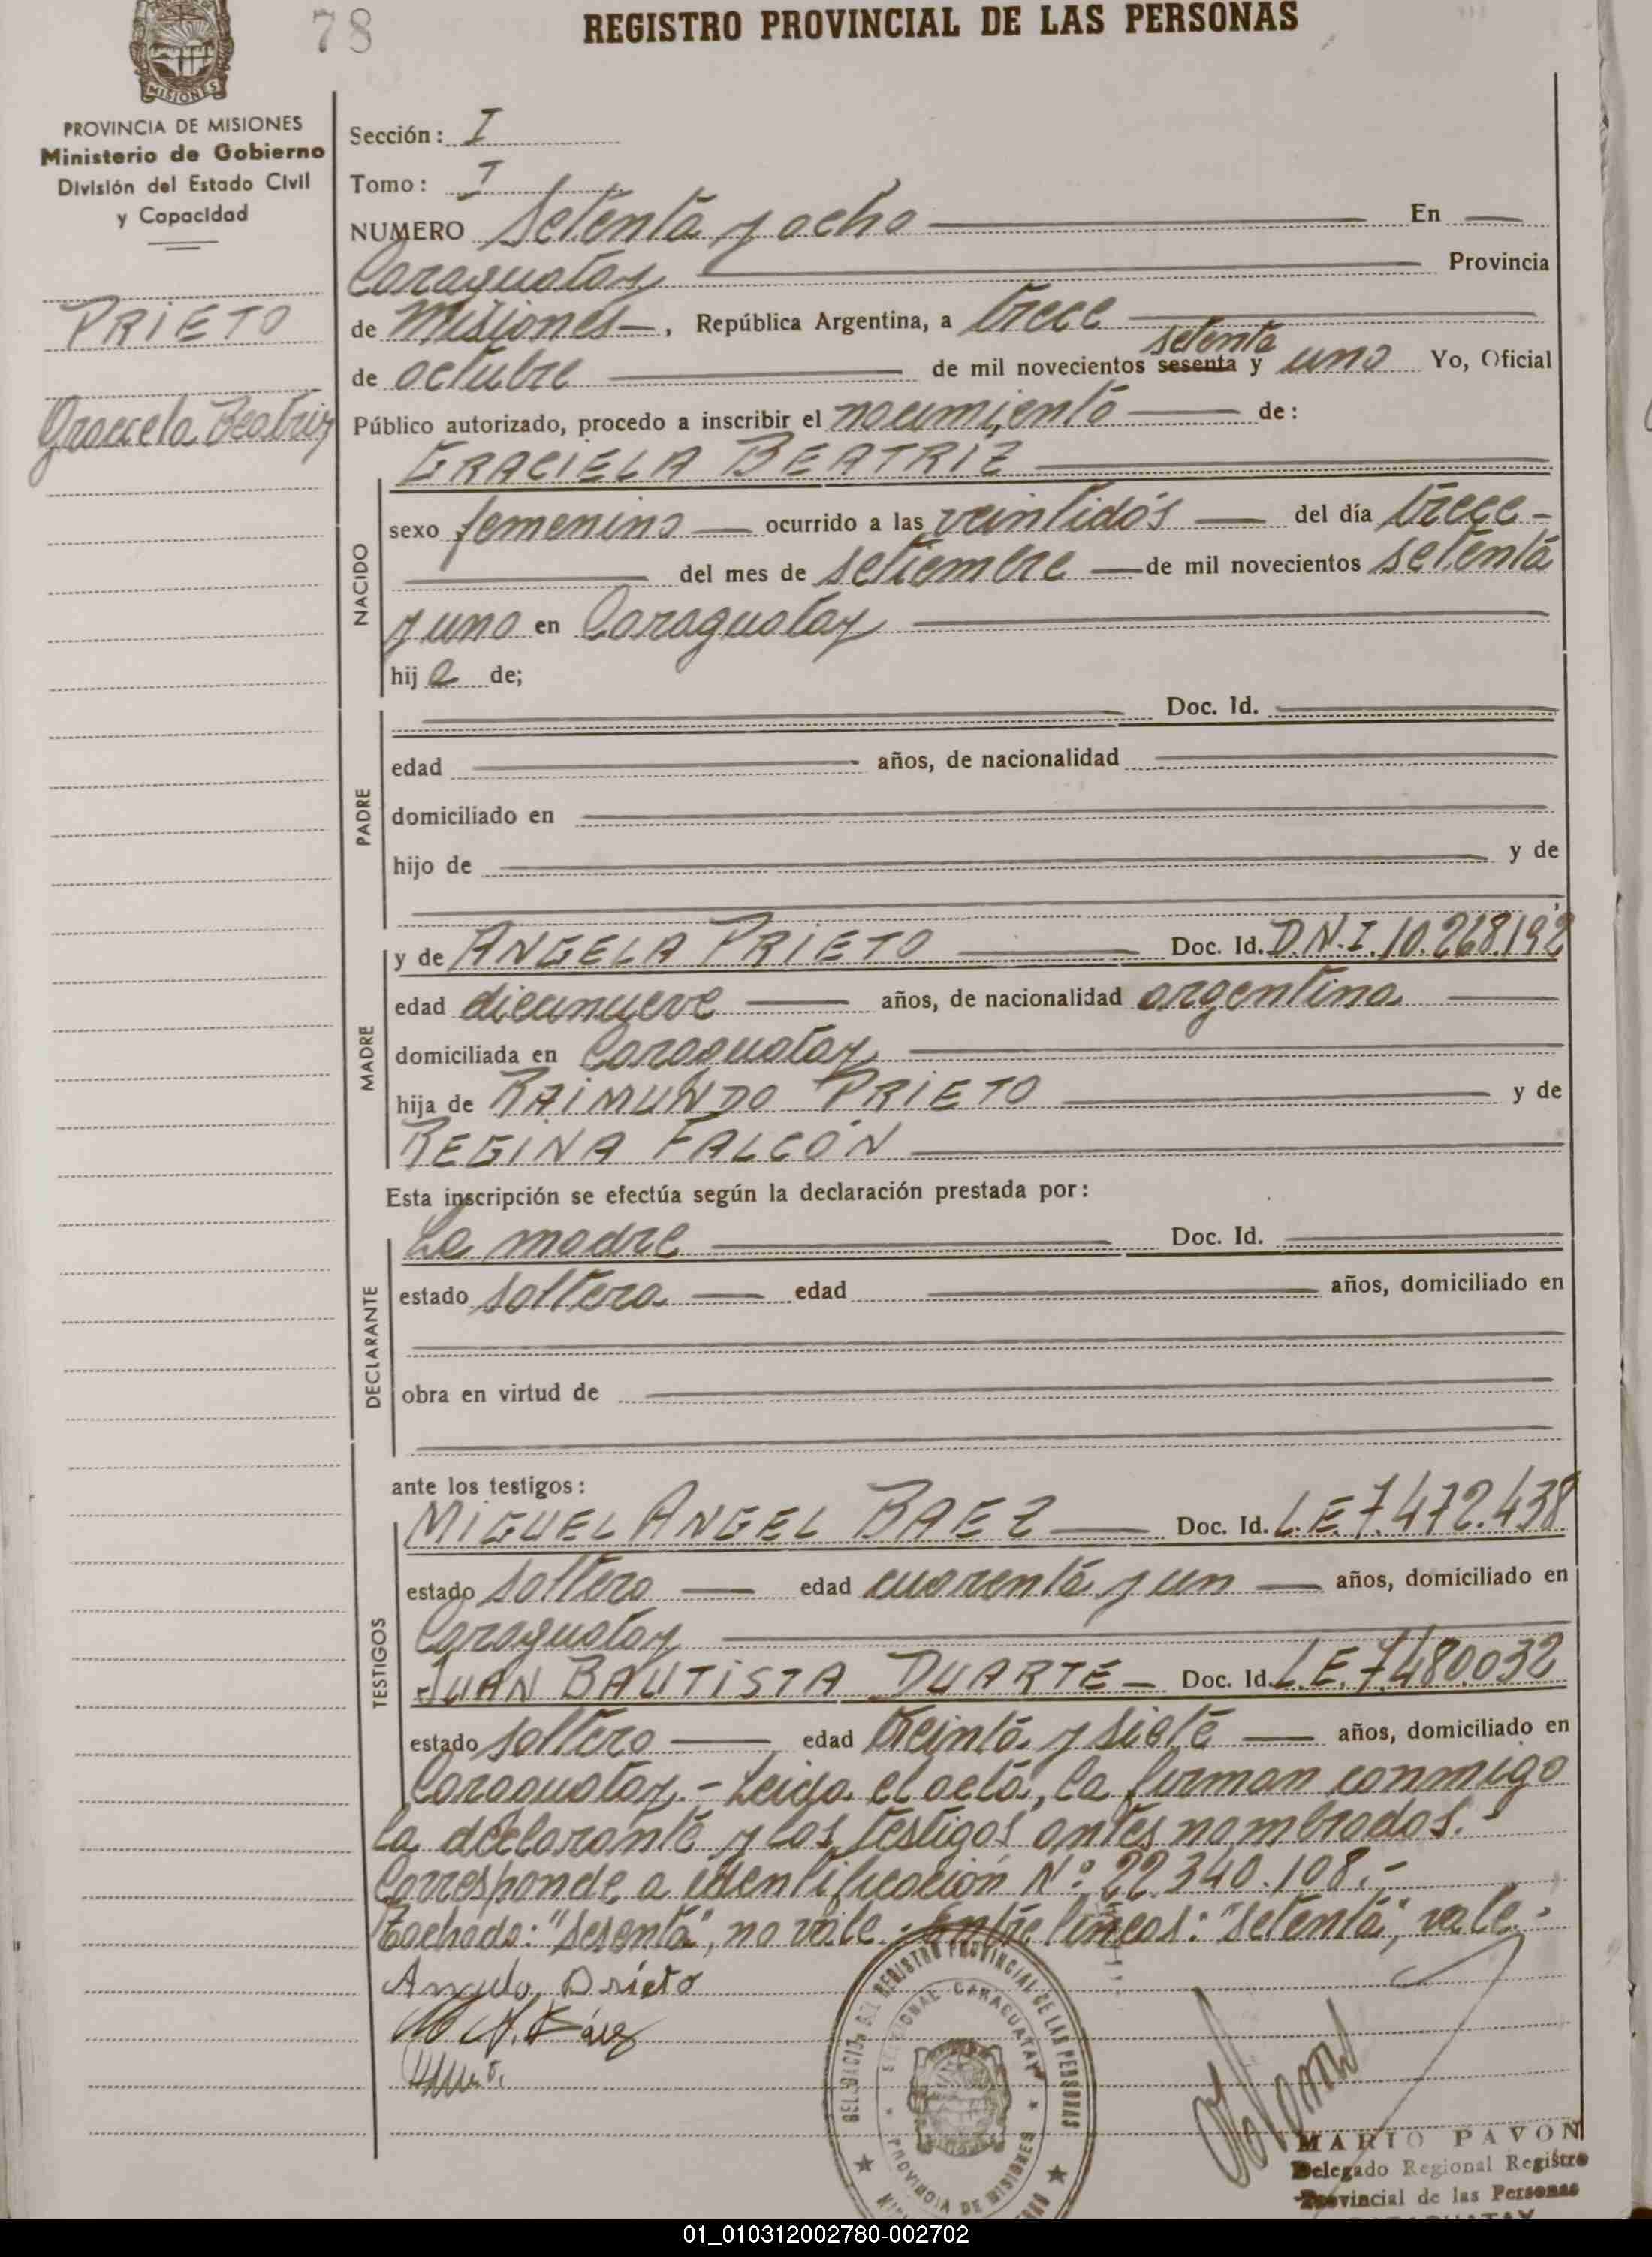 78
REGISTRO PROVINCIAL DE LAS PERSONAS
MISIONES
PROVINCIA DE MISIONES
Ministerio de Gobierno
División del Estado Civil
y Capacidad
PRIETO
Graciela Beatriz
Sección: I
Tomo: I
NUMERO Setenta y ocho En
Caraguatay Provincia
de Misiones, República Argentina, a trece
setenta
de octubre de mil novecientos sesenta y uno Yo, Oficial
Público autorizado, procedo a inscribir el nacimiento de:
GRACIELA BEATRIZ
NACIDO
sexo femenino ocurrido a las veintidós del día trece
del mes de setiembre de mil novecientos setenta
y uno en Caraguatay
hij a de;
PADRE
Doc. Id.
edad años, de nacionalidad
domiciliado en
hijo de y de
MADRE
y de ANGELA PRIETO Doc. Id. D.N.I. 10.268.192
edad diecinueve años, de nacionalidad argentina
domiciliada en Caraguatay
hija de RAIMUNDO PRIETO y de
REGINA FALCÓN
Esta inscripción se efectúa según la declaración prestada por:
DECLARANTE
La madre Doc. Id.
estado soltera edad años, domiciliado en
obra en virtud de
ante los testigos:
TESTIGOS
MIGUEL ANGEL BAEZ Doc. Id. L.E. 7.472.438
estado soltero edad cuarenta y un años, domiciliado en
Caraguatay
JUAN BAUTISTA DUARTE Doc. Id. L.E. 7.480.032
estado soltero edad treinta y siete años, domiciliado en
Caraguatay.- Leída el acta, la firman conmigo
la declarante y los testigos antes nombrados.
Corresponde a identificación Nº: 22.340.108.-
Tachado: "sesenta", no vale. Entre líneas: "setenta", vale.-
Angela Prieto
M. A. Báez
DELEGACIÓN DEL REGISTRO PROVINCIAL DE LAS PERSONAS
SECCIONAL CARAGUATAY
PROVINCIA DE MISIONES
MARIO PAVON
Delegado Regional Registro
Provincial de las Personas
CARAGUATAY
01_010312002780-002702